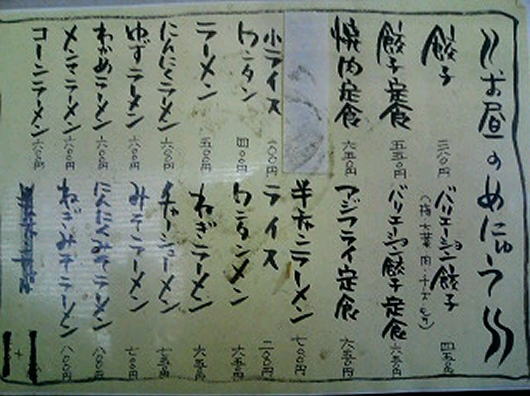 お昼のめにゅう
餃子 三八〇円
バリエーション餃子 四五〇円
餃子定食 五五〇円
バリエーション餃子定食 六五〇円
焼肉定食 六五〇円
アジフライ定食 六五〇円
半チャンラーメン 七〇〇円
小ライス 一〇〇円
ライス 二〇〇円
ワンタン 四〇〇円
ワンタンメン 六五〇円
ラーメン 五〇〇円
ねぎラーメン 六五〇円
にんにくラーメン 六〇〇円
チャーシューメン 七五〇円
ゆずラーメン 六〇〇円
みそラーメン 七〇〇円
わかめラーメン 六〇〇円
にんにくみそラーメン 八〇〇円
メンマラーメン 六〇〇円
ねぎみそラーメン 八〇〇円
コーンラーメン 六〇〇円